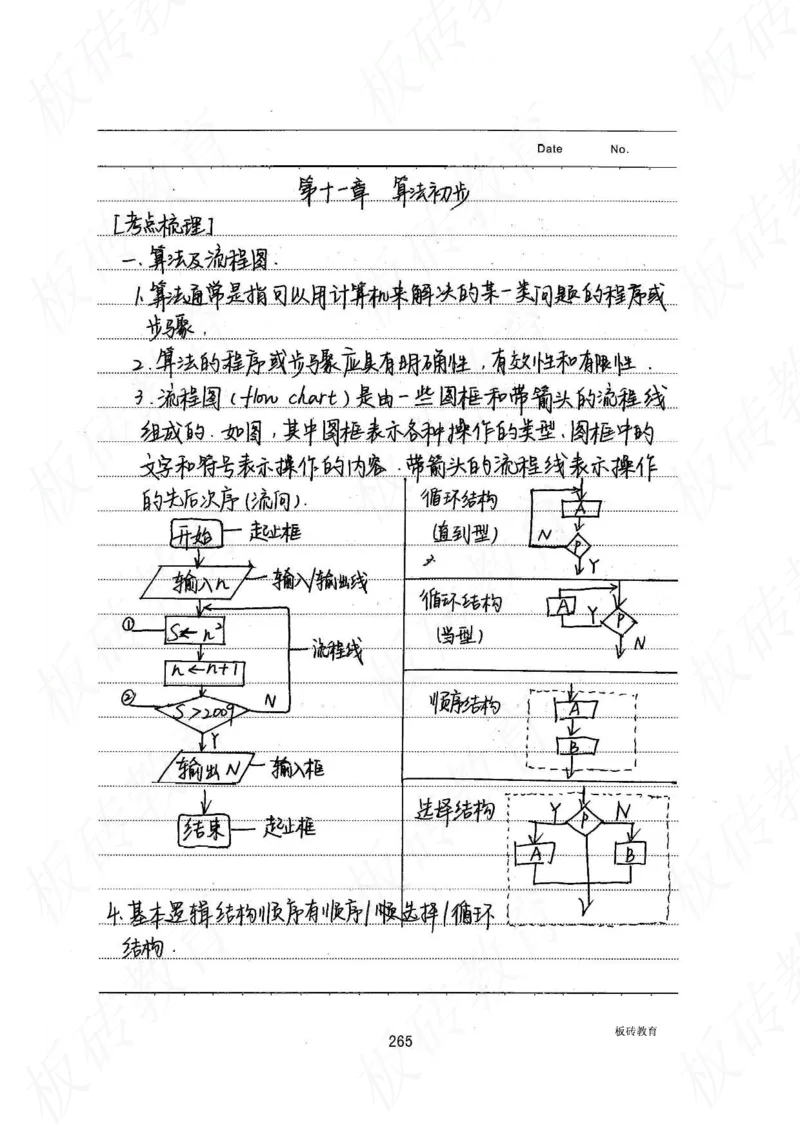 Date No.
第十一章 算法初步
[考点梳理]
一.算法及流程图.
1.算法通常是指可以用计算机来解决的某一类问题的程序或
步骤.
2.算法的程序或步骤应具有明确性,有效性和有限性.
3.流程图(flow chart)是由一些图框和带箭头的流程线
组成的.如图,其中图框表示各种操作的类型.图框中的
文字和符号表示操作的内容.带箭头的流程线表示操作
的先后次序(流向).
开始 起止框
输入n 输入/输出线
① S←n²
流程线
n←n+1
② S>2009 N
Y
输出N 输入框
结束 起止框
循环结构
(直到型)
A
N P
Y
循环结构
(当型)
A Y P
N
顺序结构
A
B
选择结构
Y P N
A B
4.基本逻辑结构顺序有顺序/选择/循环
结构.
265
板砖教育